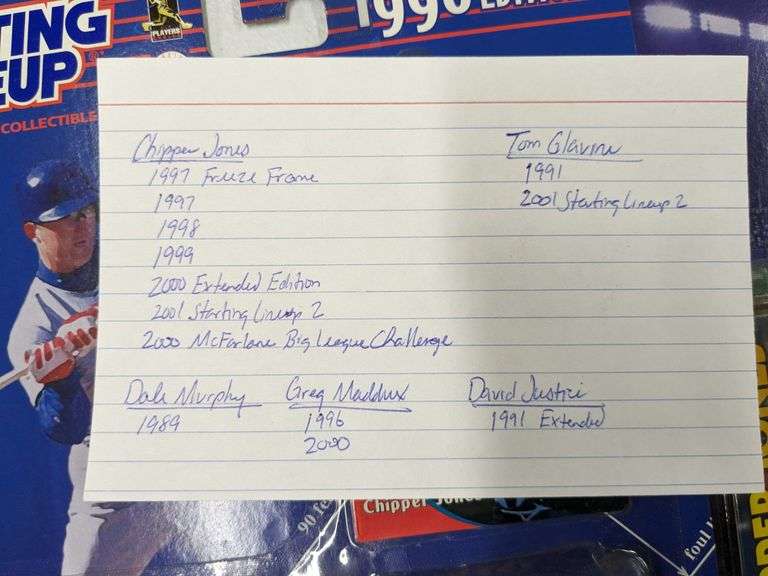 TING
EUP
COLLECTIBLE
PLAYERS
1998 EDITION
Chipper Jones
1997 Freeze Frame
1997
1998
1999
2000 Extended Edition
2001 Starting Lineup 2
2000 McFarlane Big League Challenge
Tom Glavine
1991
2001 Starting Lineup 2
Dale Murphy
1989
Greg Maddux
1996
2000
David Justice
1991 Extended
Chipper Jones
90 fe
foul